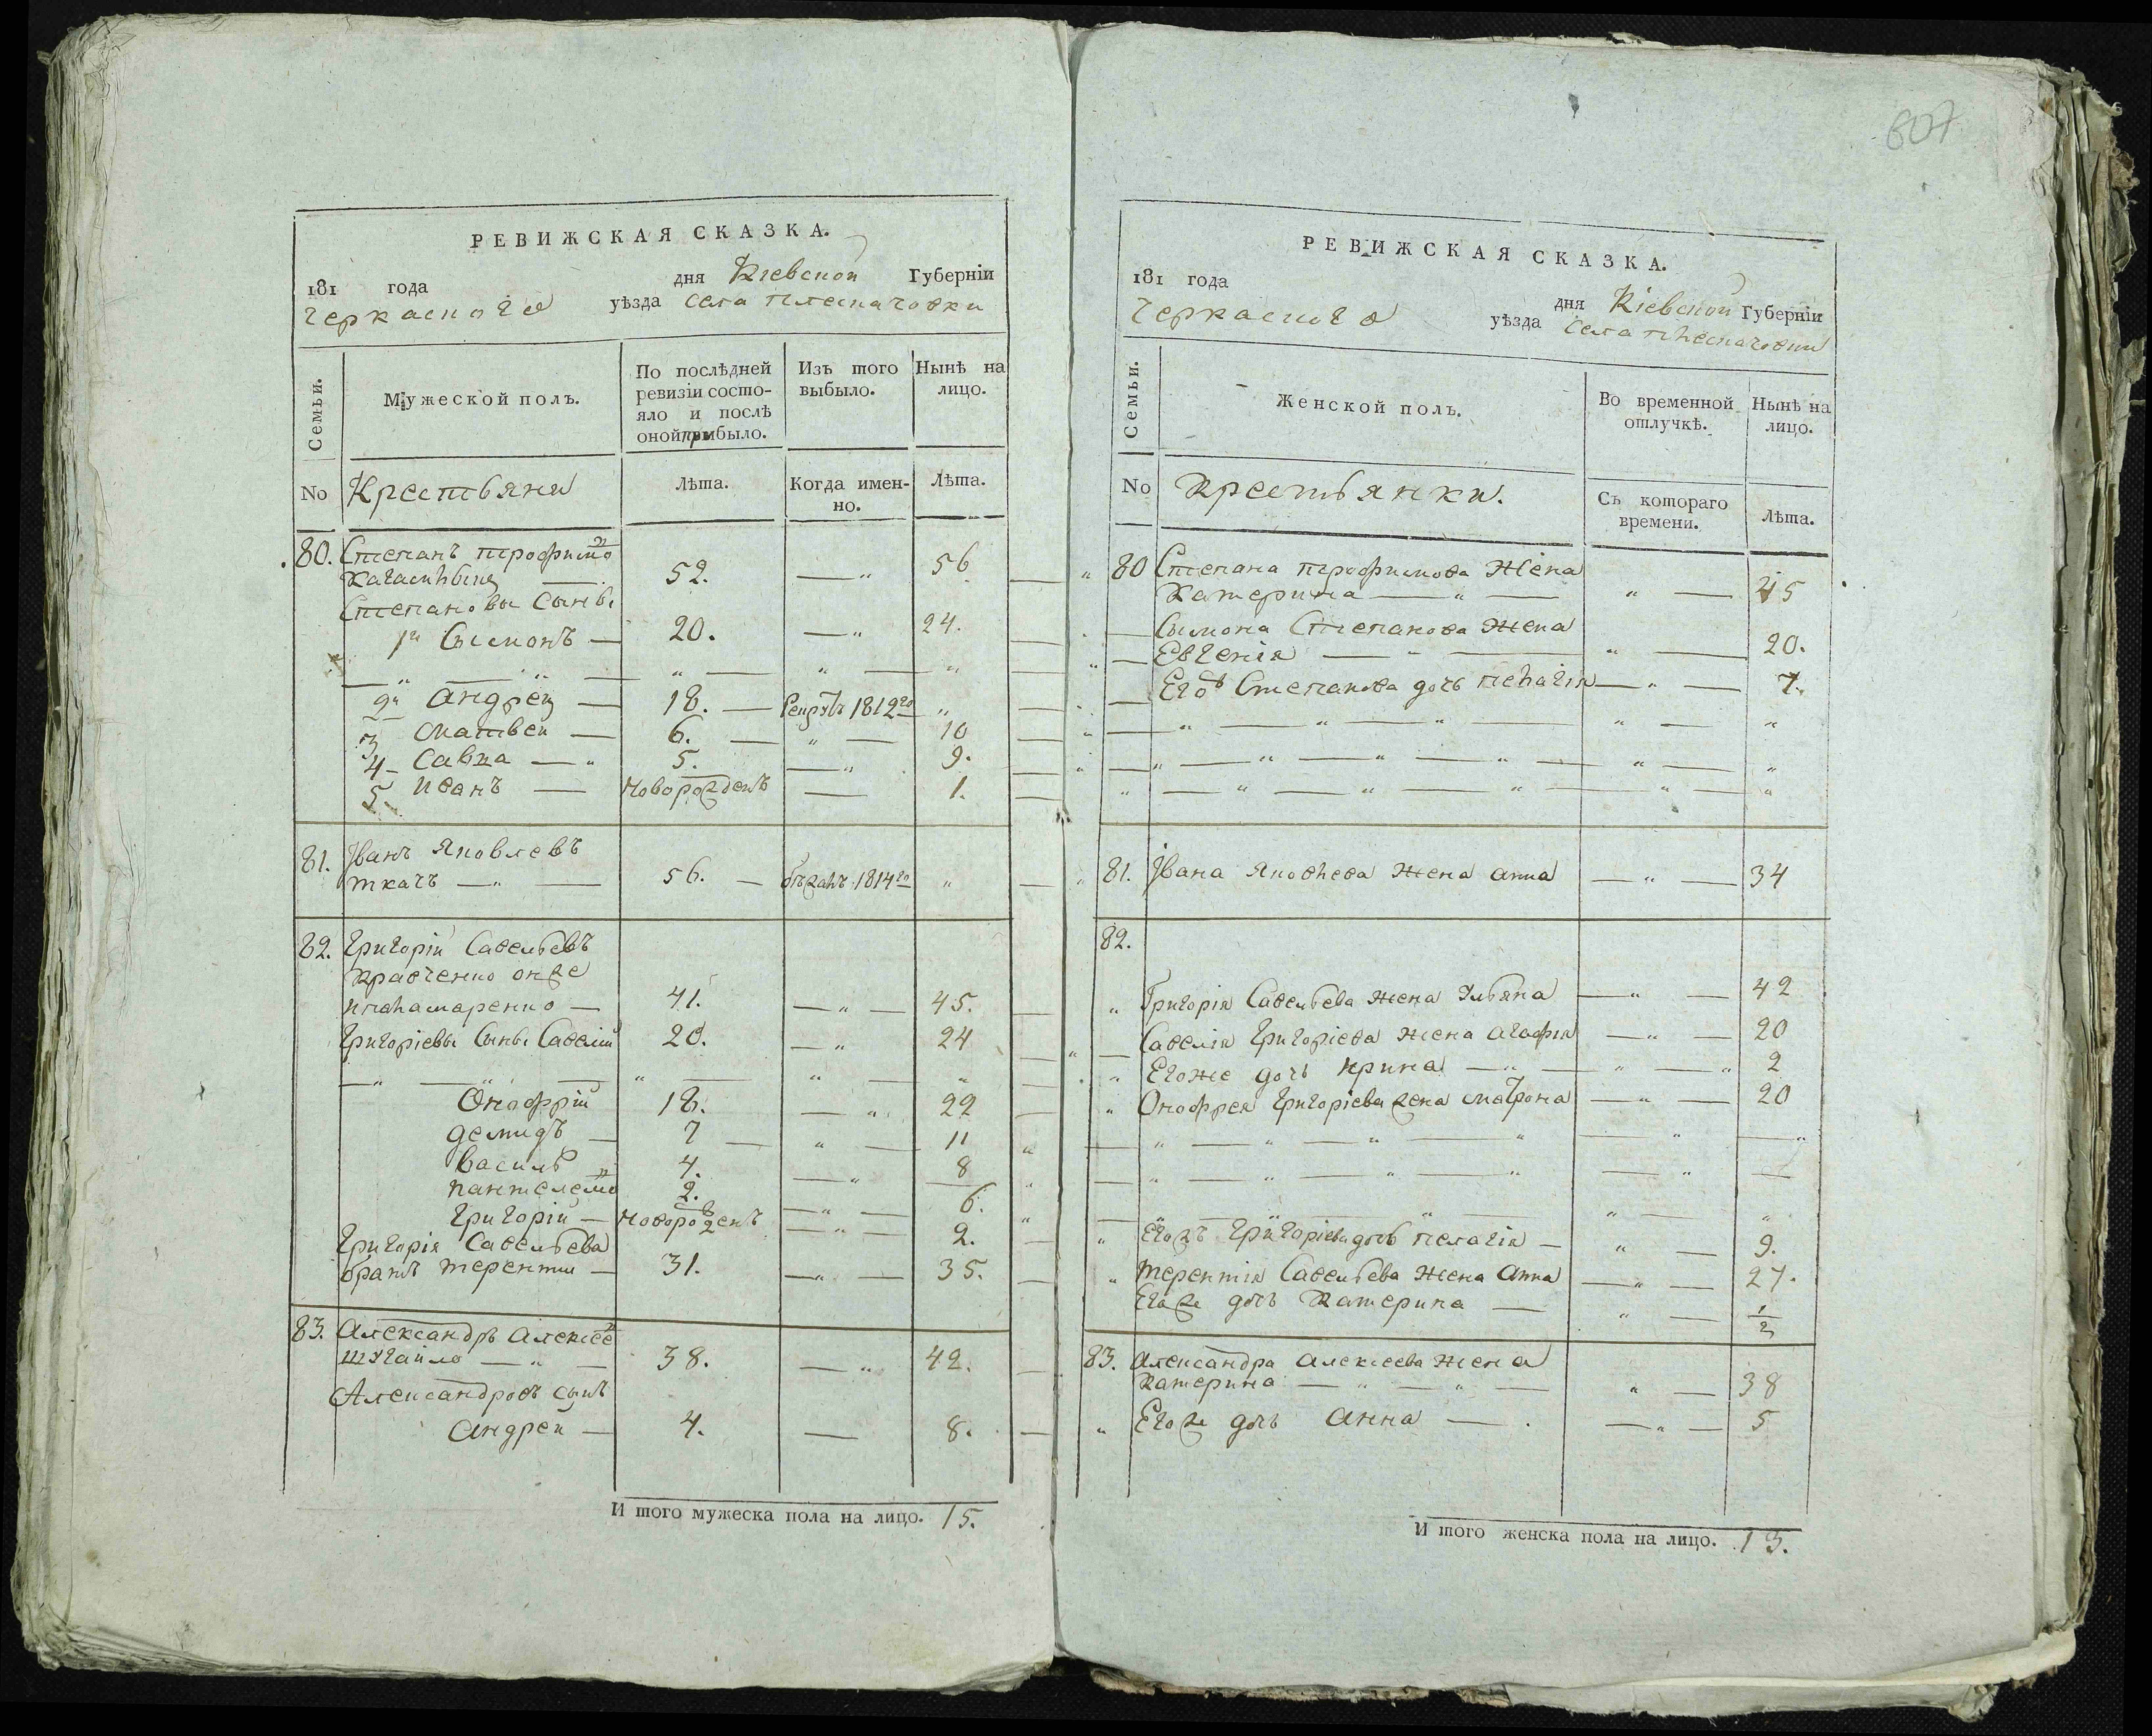 607
РЕВИЖСКАЯ СКАЗКА.
181 года дня Кіевской Губерніи
Черкаского уѣзда села Плескачовки
Семьи.
Мужеской полъ.
По послѣдней ревизіи состояло и послѣ оной прибыло.
Изъ того выбыло.
Нынѣ на лицо.
No Крестьяни
Лѣта.
Когда именно.
Лѣта.
80. Степанъ трофимо
52. — " 56
Степановы Сыны
1й Сымонъ — 20. — " 24.
2й андрей — 18. — Рекрутъ 1812го "
3 матвей — 6. — " — 10
4 Савка — " 5. — " 9.
5. иванъ — новорожденъ — 1.
81. Іванъ Яковлевъ
ткачъ — " — 56. — бѣжалъ 1814го "
82. Григорій Савельевъ
Кравченко онже
паламаренко — 41. — " — 45.
Григоріевы Сыны Савелій 20. — " 24
Онофрій 18. — " 22
демидъ — 7 — " — 11
василь 4. — " 8
пантелемо 2. — " — 6.
Григорій — новорожденъ — " — 2.
Григорія Савельева
братъ терентій — 31. — " — 35.
83. Александръ Алексее
шугайло — " — 38. — " 42.
Александровъ сынъ
Андрей — 4. — 8.
И того мужеска пола на лицо. 15.
РЕВИЖСКАЯ СКАЗКА.
181 года дня Кіевской Губерніи
Черкаского уѣзда села плескачовки
Семьи.
Женской полъ.
Во временной отлучкѣ.
Нынѣ на лицо.
No Крестьянки.
Съ котораго времени.
Лѣта.
80 Степана трофимова Жена
Катерина — " — " — 45
Сымона Степанова Жена
Евгенія — " — " — 20.
Егоъ Степанова дочь пелагія — " — 7.
81. Івана Яковлева жена анна — " — 34
82.
" Григорія Савельева жена Ульяна — " — 42
Савелія Григоріева жена агафія — " — 20
" Егоже дочь ирина — " — " — " 2
" Онофрея Григоріева жена матрона — " — 20
" Егожъ Григоріева дочь пелагія — " — 9.
" терентія Савельева жена Анна — " — 27.
Егоже дочь Катерина — " — 1/2
83. Александра алексеева жена
Катерина — " — " — " — 38
" Егоже дочь анна — . — " — 5
И того женска пола на лицо. 13.